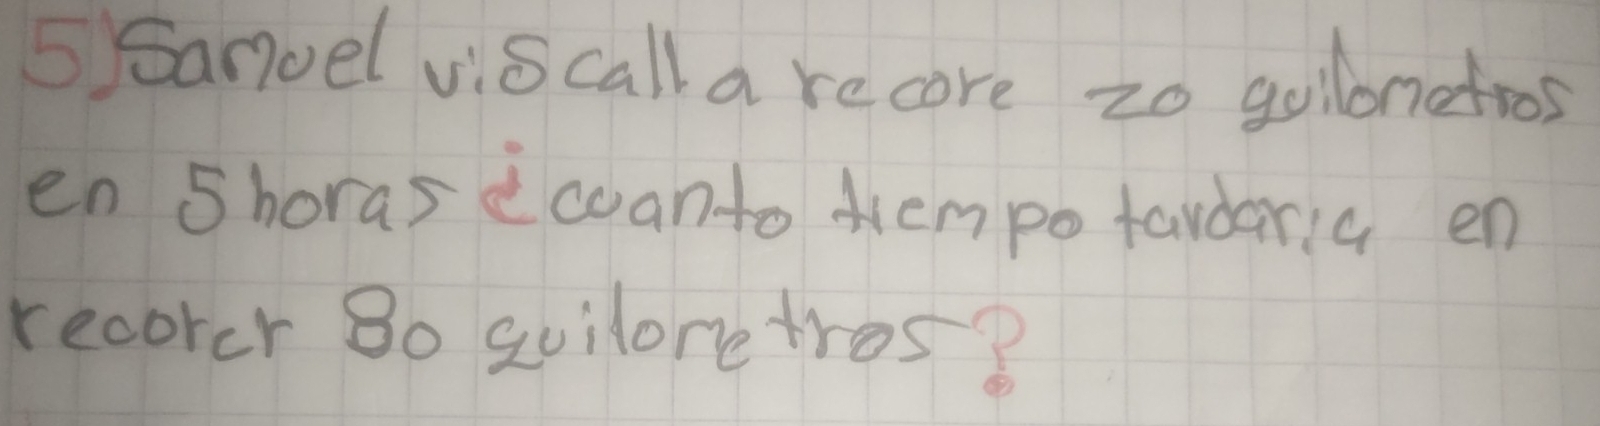 5) Samuel viscalla recore 20 quilometros
en 5 horas ¿cuanto tiempo tardaria en
recorer 80 quilometros?